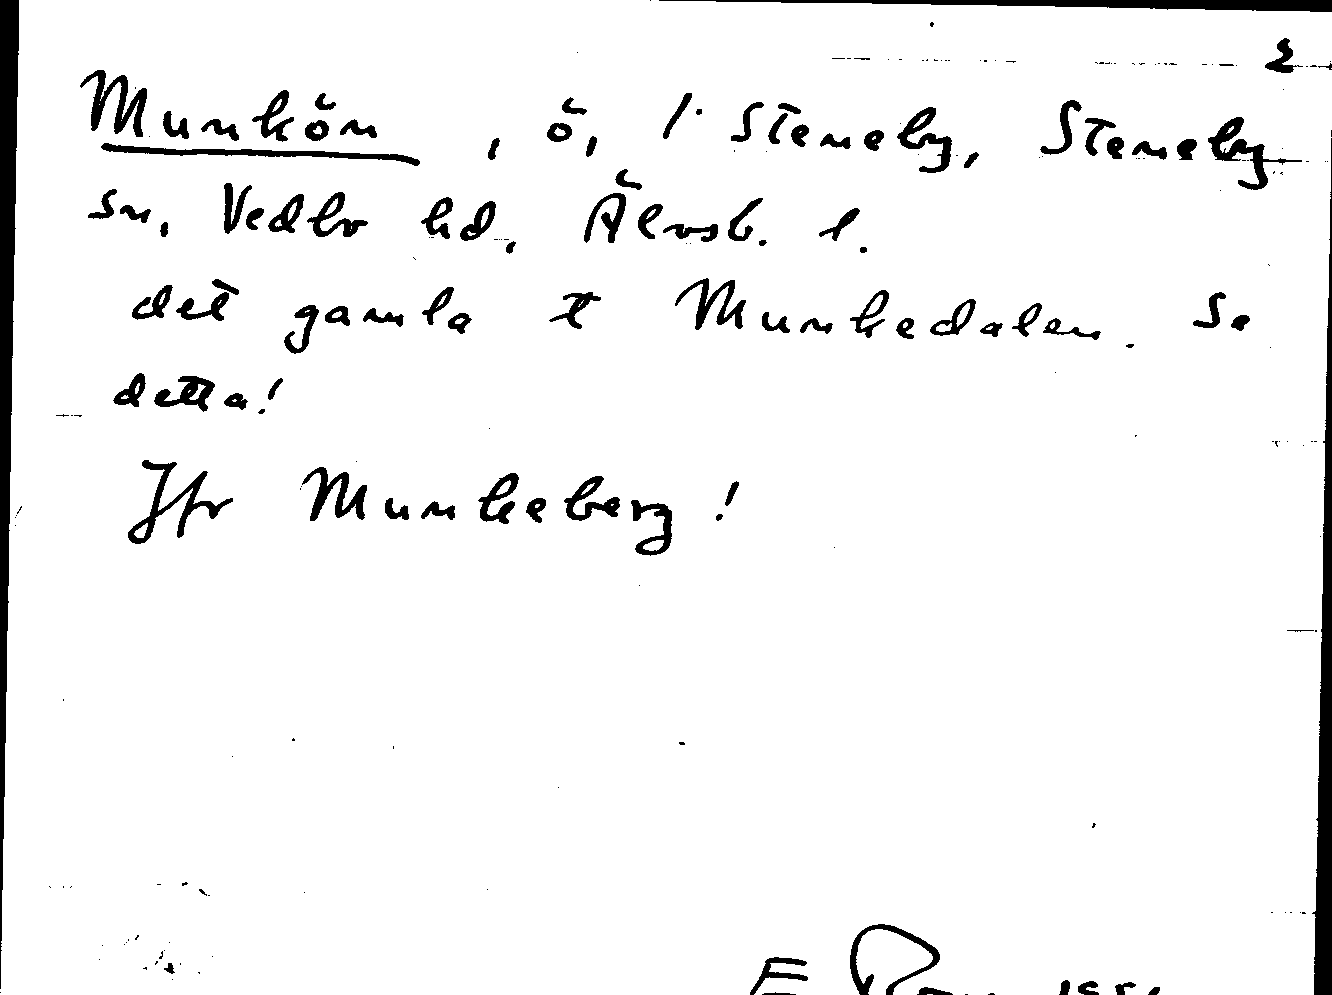 2
Munkön , ö, 1 Steneby, Steneby
sn, Vedbo hd, Älvsb. l.
det gamla t Munkedalen. Se
detta!
Jfr Munkeberg!
E